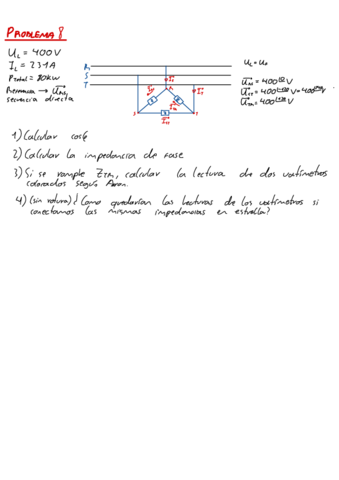 PROBLEMA 8
U_L = 400V
I_L = 23'1A
P_total = 10kW
Referencia → U_RS,
secuencia directa
R
S
T
U_L = U_F
U_RS = 400∠0 V
1) Calcular cosφ
2) Calcular la impedancia de fase
3) Si se rompe Z_TR, calcular la lectura de dos vatímetros
colocados según Aron.
4) (sin rotura) ¿Como quedarían las lecturas de los vatímetros si
conectamos las mismas impedancias en estrella?